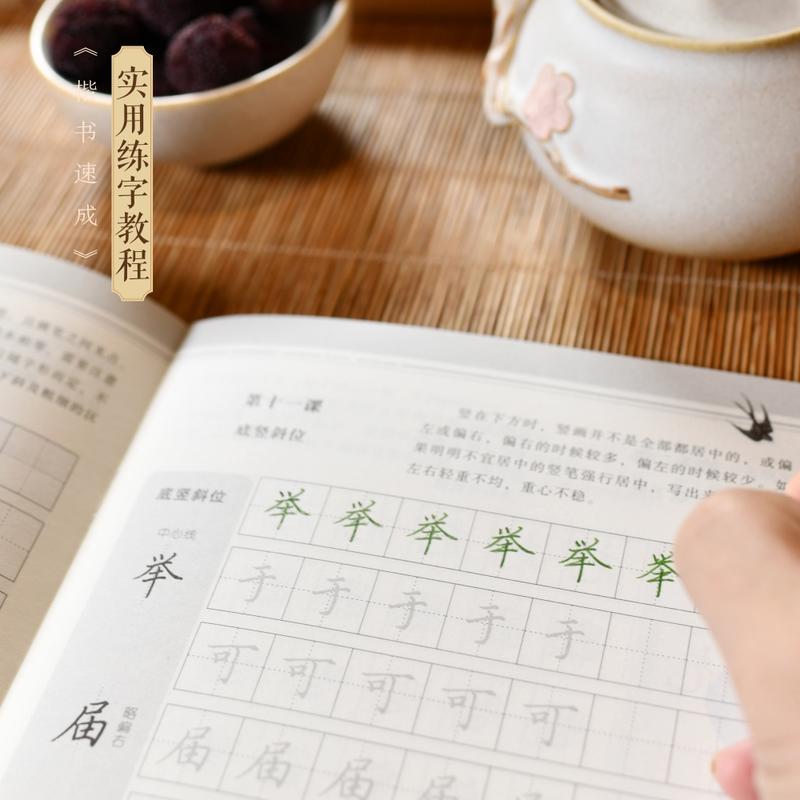 《楷书速成》
实用练字教程
第十一课
底竖斜位
竖在下方时，竖画并不是全部都居中的，或偏
左或偏右，偏右的时候较多，偏左的时候较少。如
果明明不宜居中的竖笔强行居中，写出来
左右轻重不均，重心不稳。
底竖斜位
中心线
举
举举举举举举
于于于于于
可可可可可
届
略偏右
届届届届